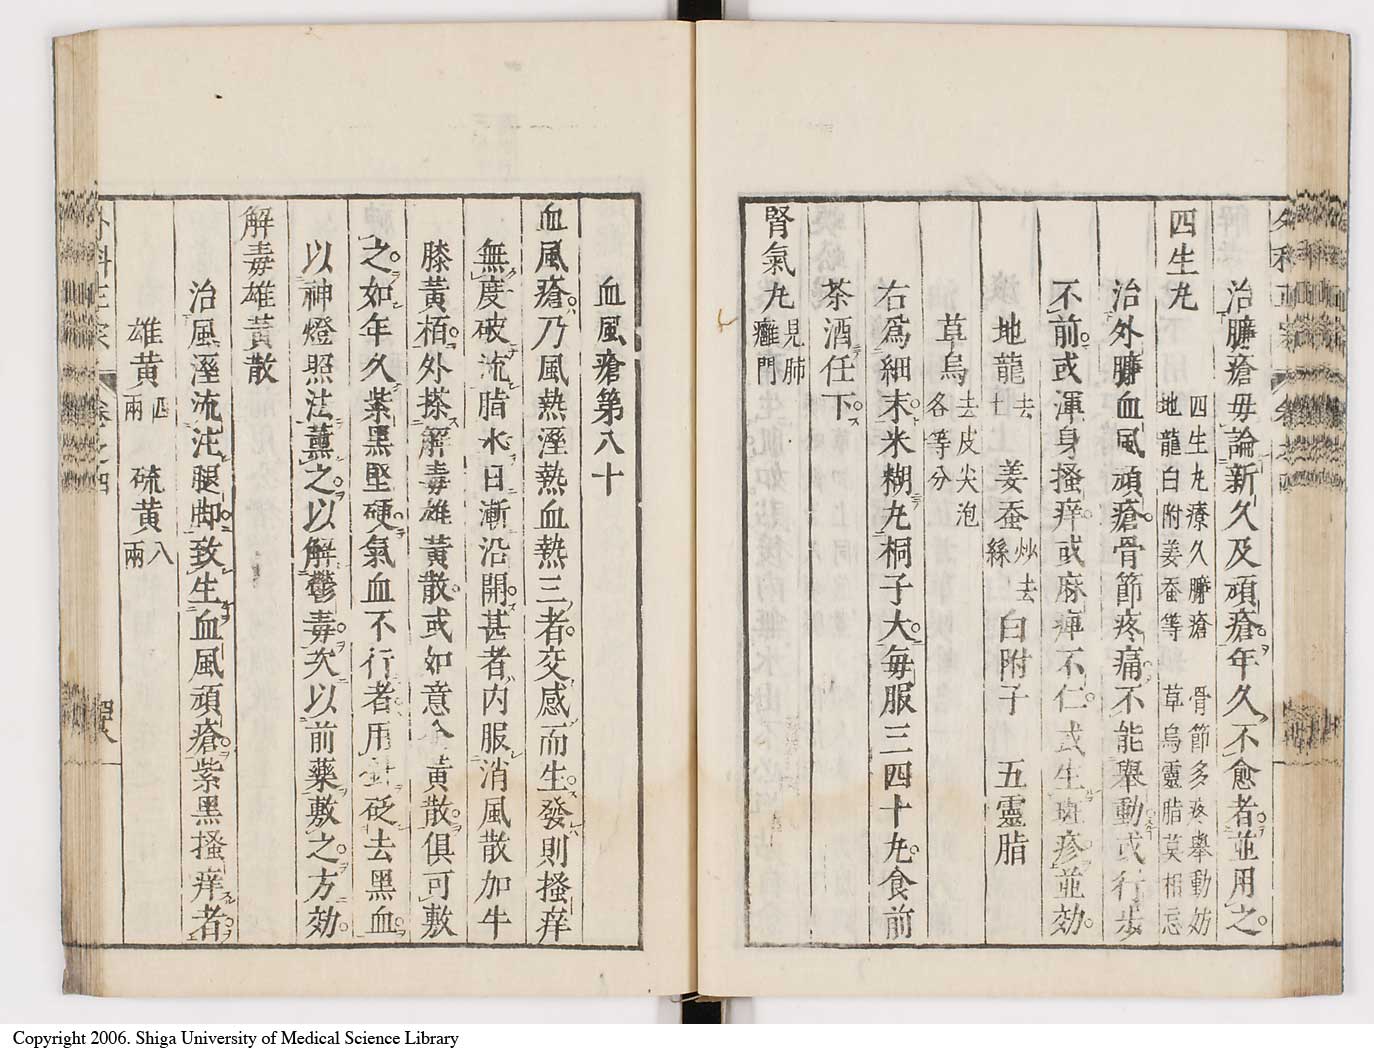 治臁瘡毋論新久及頑瘡年久不愈者並用之
四生丸
四生丸療久臁瘡 骨節多疼舉動妨
地龍白附姜蚕等 草烏靈脂莫相忘
治外臁血風頑瘡骨節疼痛不能舉動或行步
不前或渾身搔痒或麻痺不仁或生斑疹並効
地龍去土 姜蚕炒去絲 白附子 五靈脂
草烏去皮尖泡各等分
右爲細末米糊丸桐子大每服三四十丸食前
茶酒任下
腎氣丸見肺癰門
血風瘡第八十
血風瘡乃風熱溼熱血熱三者交感而生發則搔痒
無度破流脂水日漸沿開甚者内服消風散加牛
膝黃栢外搽解毒雄黃散或如意金黃散俱可敷
之如年久紫黑堅硬氣血不行者用針砭去黑血
以神燈照法薰之以解鬱毒次以前藥敷之方効
解毒雄黃散
治風溼流注腿脚致生血風頑瘡紫黑搔痒者
雄黃四兩 硫黃八兩
外科正宗 卷之四
Copyright 2006. Shiga University of Medical Science Library